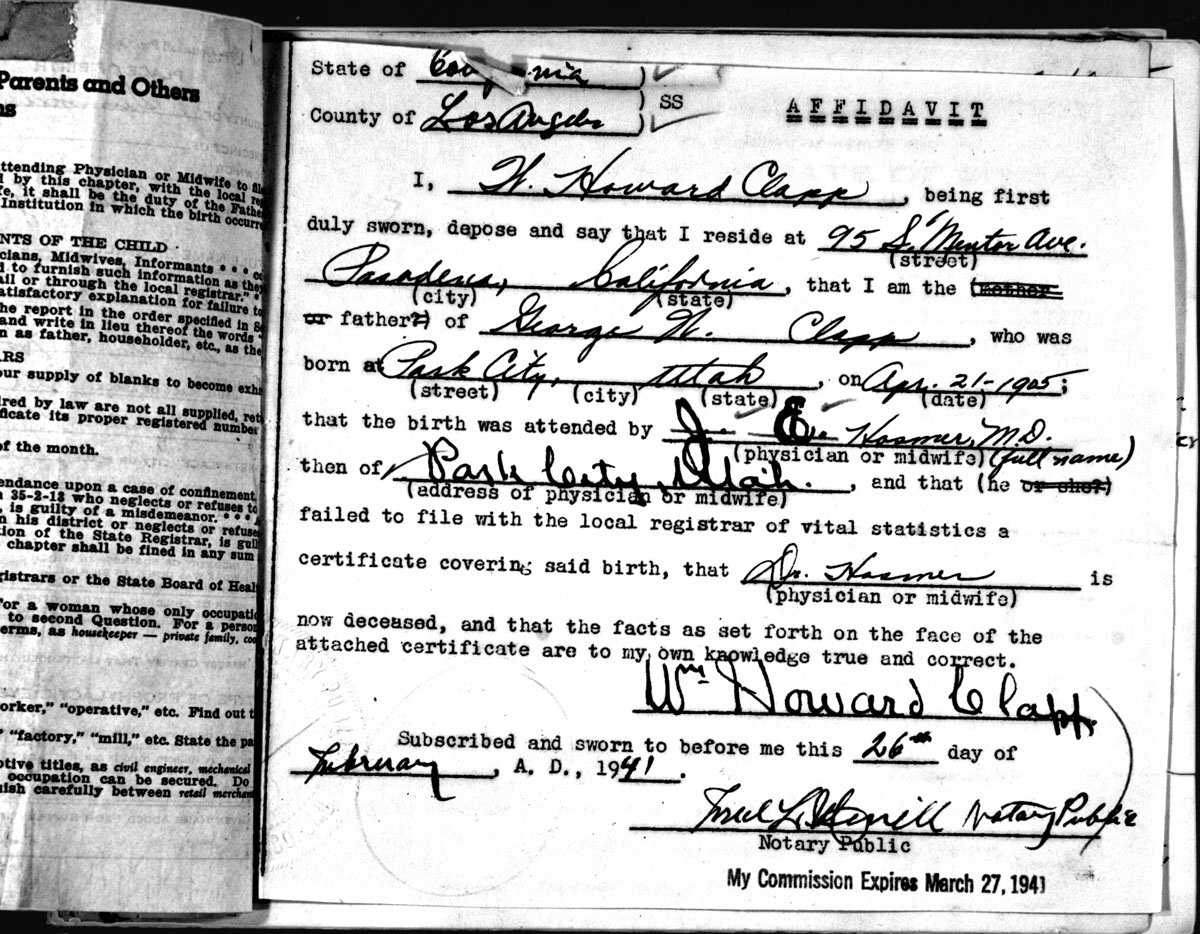 Parents and Others
ns
attending Physician or Midwife to file
d by this chapter, with the local reg
fe, it shall be the duty of the Fathe
Institution in which the birth occurre
NTS OF THE CHILD
cians, Midwives, Informants • • • ce
d to furnish such information as they
ail or through the local registrar." •
atisfactory explanation for failure to
he report in the order specified in Se
and write in lieu thereof the words "
n as father, householder, etc., as the
RS
our supply of blanks to become exha
ired by law are not all supplied, retu
ficate its proper registered number
of the month.
endance upon a case of confinement,
n 35-2-13 who neglects or refuses to
, is guilty of a misdemeanor. • • •
n his district or neglects or refuse
tion of the State Registrar, is guil
chapter shall be fined in any sum
gistrars or the State Board of Heal
For a woman whose only occupatio
to second Question. For a person
erms, as housekeeper — private family, coo
orker," "operative," etc. Find out t
" "factory," "mill," etc. State the pa
ptive titles, as civil engineer, mechanical
occupation can be secured. Do
uish carefully between retail merchan
State of nia )
County of Los Angeles ) SS
AFFIDAVIT
I, W. Howard Clapp, being first
duly sworn, depose and say that I reside at 95 S. Mentor Ave.
(street)
Pasadena, California, that I am the (mother
(city) (state)
or father?) of George W. Clapp, who was
born at Park City, Utah, on Apr. 21-1905;
(street) (city) (state) (date)
that the birth was attended by J. E. Hosmer, M.D.
(physician or midwife) (full name)
then of Park City, Utah., and that (he or she?)
(address of physician or midwife)
failed to file with the local registrar of vital statistics a
certificate covering said birth, that Dr. Hosmer is
(physician or midwife)
now deceased, and that the facts as set forth on the face of the
attached certificate are to my own knowledge true and correct.
Wm Howard Clapp
Subscribed and sworn to before me this 26th day of
February, A. D., 1941.
Notary Public
Notary Public
My Commission Expires March 27, 1941